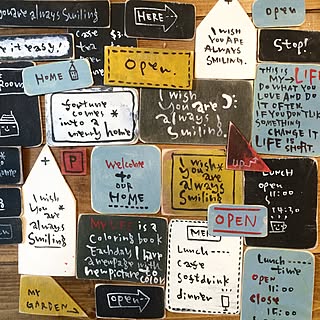 you are always Smiling
HERE→
I WISH
YOU ARE
ALWAYS
SMILING.
open
Stop!
take it easy!
case
tea
open.
HOME
THIS IS MY LIFE
DO WHAT YOU
LOVE AND DO
IT OFTEN.
IF YOU DON'T LIKE
SOMETHING
CHANGE IT
LIFE IS
SHORT.
fortune
comes
into a
merry home
wish
you are
always
smiling.
P
Welcome
to
OUR
HOME
I wish
you are
always
Smiling
UP
LUNCH
open
11:00
14:30
I wish
You are
always
Smiling
MY LIFE is a
Coloring book
Each day I have
a new page with
new picture to color
OPEN
MENU
Lunch
cafe
Softdrink
dinner
Lunch
time
OPEN
11:00
close
15:00
MY
GARDEN
open→